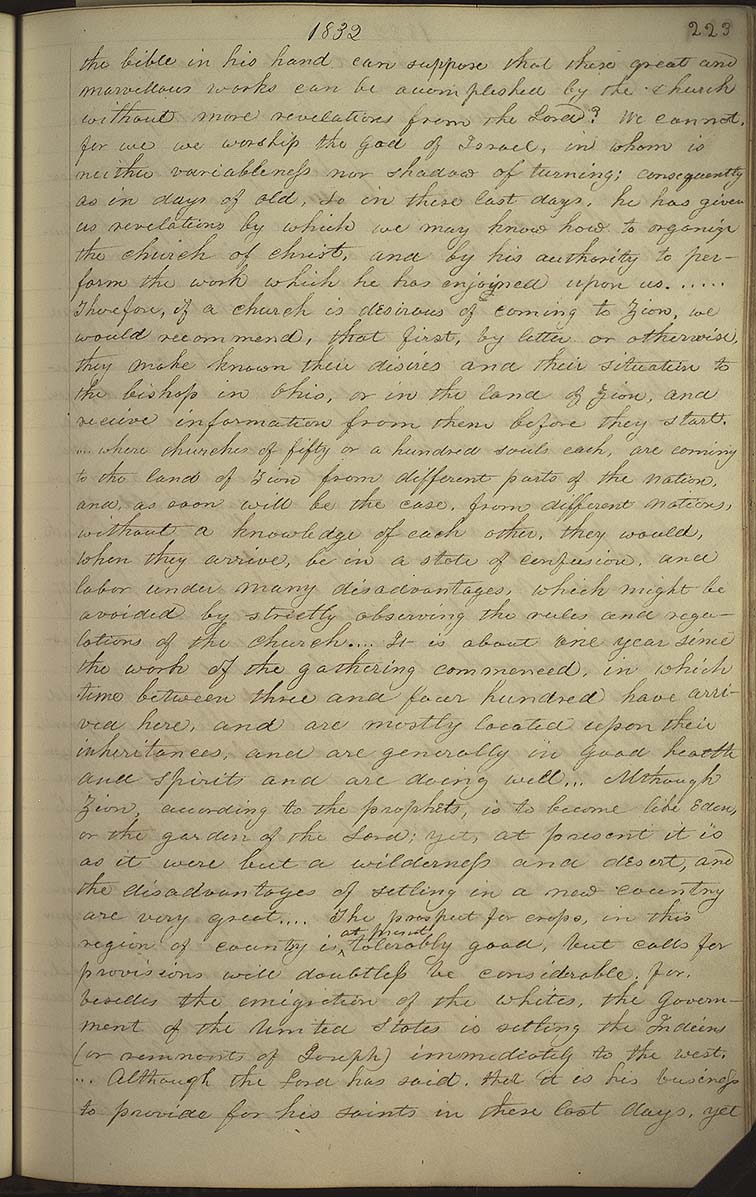 1832
223
the bible in his hand can suppose that these great and
marvellous works can be accomplished by the church
without more revelations from the Lord? We cannot,
for we we worship the God of Israel, in whom is
neither variableness nor shadow of turning; consequently
as in days of old, so in these last days, he has given
us revelations by which we may know how to organize
the church of christ, and by his authority to per-
form the work which he has enjoined upon us. . . . . .
Therefore, if a church is desirous of coming to Zion, we
would recommend, that first, by letter or otherwise,
they make known their desires and their situation to
the bishop in Ohio, or in the land of Zion, and
recieve information from them before they start.
... where churches of fifty or a hundred souls each, are coming
to the land of Zion from different parts of the nation,
and, as soon will be the case, from different nations,
without a knowledge of each other, they would,
when they arrive, be in a state of confusion, and
labor under many disadvantages, which might be
avoided by strictly observing the rules and regu-
lations of the church.... It is about one year since
the work of the gathering commenced, in which
time between three and four hundred have arri-
ved here, and are mostly located upon their
inheritances, and are generally in good health
and spirits and are doing well... Although
Zion, according to the prophets, is to become like Eden,
or the garden of the Lord; yet, at present it is
as it were but a wilderness and desert, and
the disadvantages of setling in a new country
are very great.... The prospect for crops, in this
region of country is, at present tolerably good, but calls for
provisions will doubtless be considerable, for,
besides the emigration of the whites, the govern-
ment of the United States is settling the Indians
(or remnants of Joseph) immediately to the west.
... Although the Lord has said, that it is his business
to provide for his saints in these last days, yet